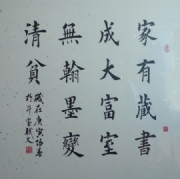 家有藏書
成大富室
無翰墨變
清貧
歲在庚寅